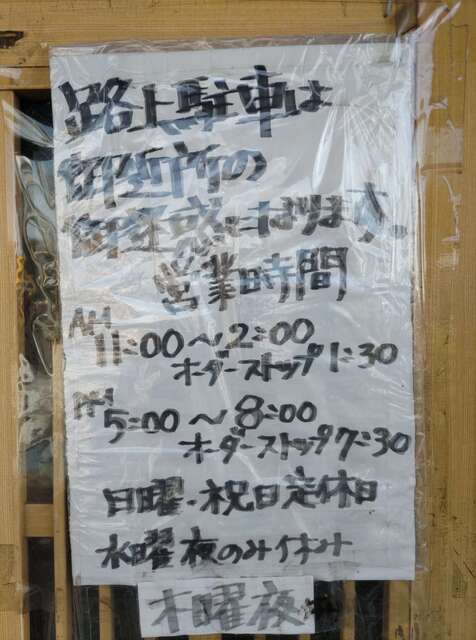 路上駐車は
御近所の
御迷惑になります。
営業時間
AM 11:00〜2:00
オーダーストップ1:30
PM 5:00〜8:00
オーダーストップ7:30
日曜・祝日定休日
水曜夜のみ休み
木曜夜